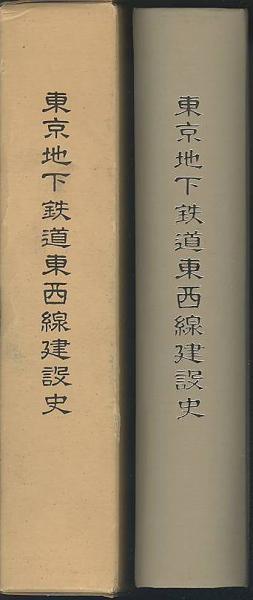 東京地下鉄道東西線建設史
東京地下鉄道東西線建設史